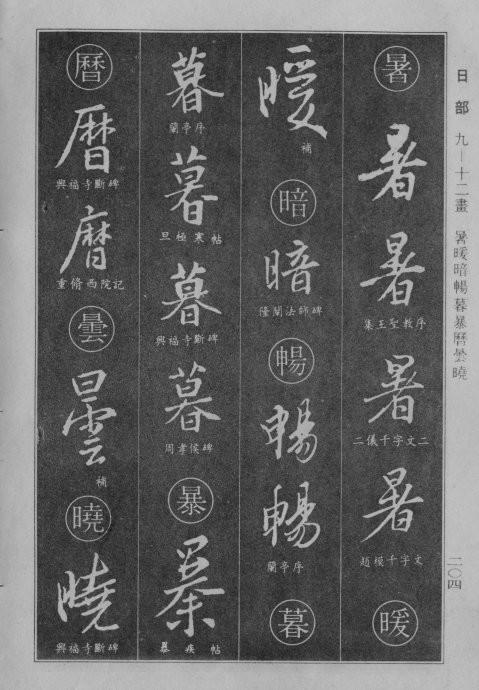 日部 九—十二畫 暑暖暗暢暮暴曆曇曉
二〇四
暑
暑
暑
集王聖教序
暑
二儀千字文二
暑
趙模千字文
暖
暖
補
暗
暗
隆闡法師碑
暢
暢
暢
蘭亭序
暮
暮
蘭亭序
暮
旦極寒帖
暮
興福寺斷碑
暮
周孝侯碑
暴
暴
暴疾帖
曆
曆
興福寺斷碑
曆
重脩西院記
曇
曇
補
曉
曉
興福寺斷碑